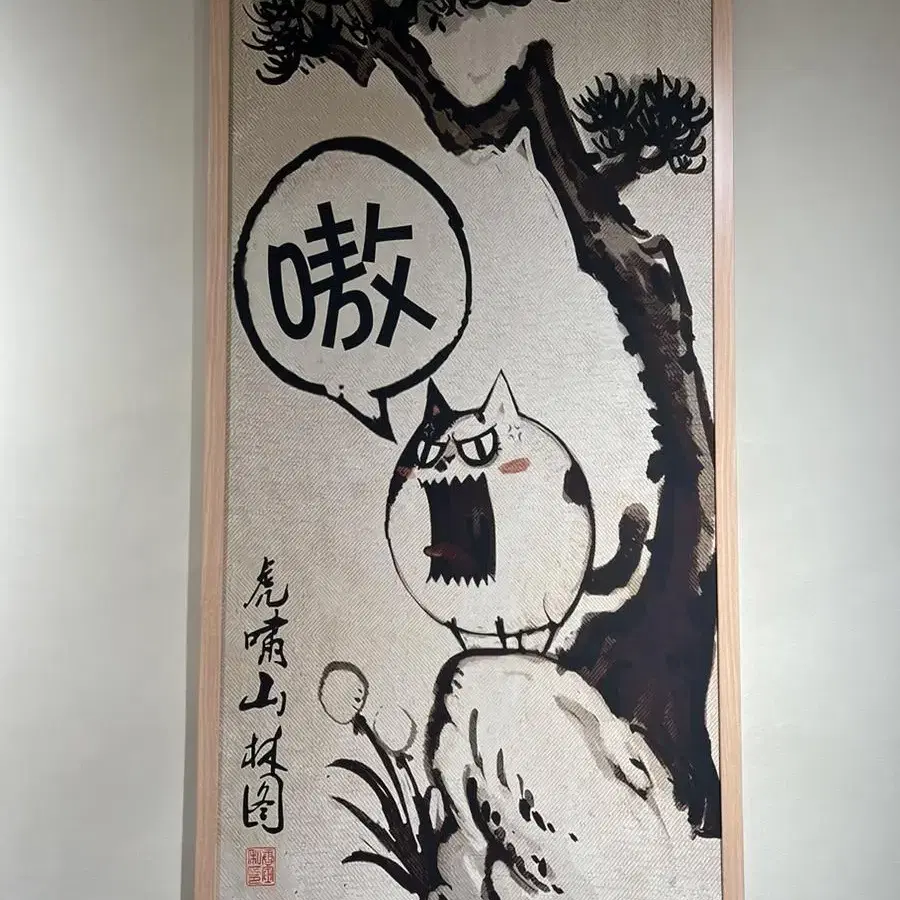 嗷
虎啸山林图